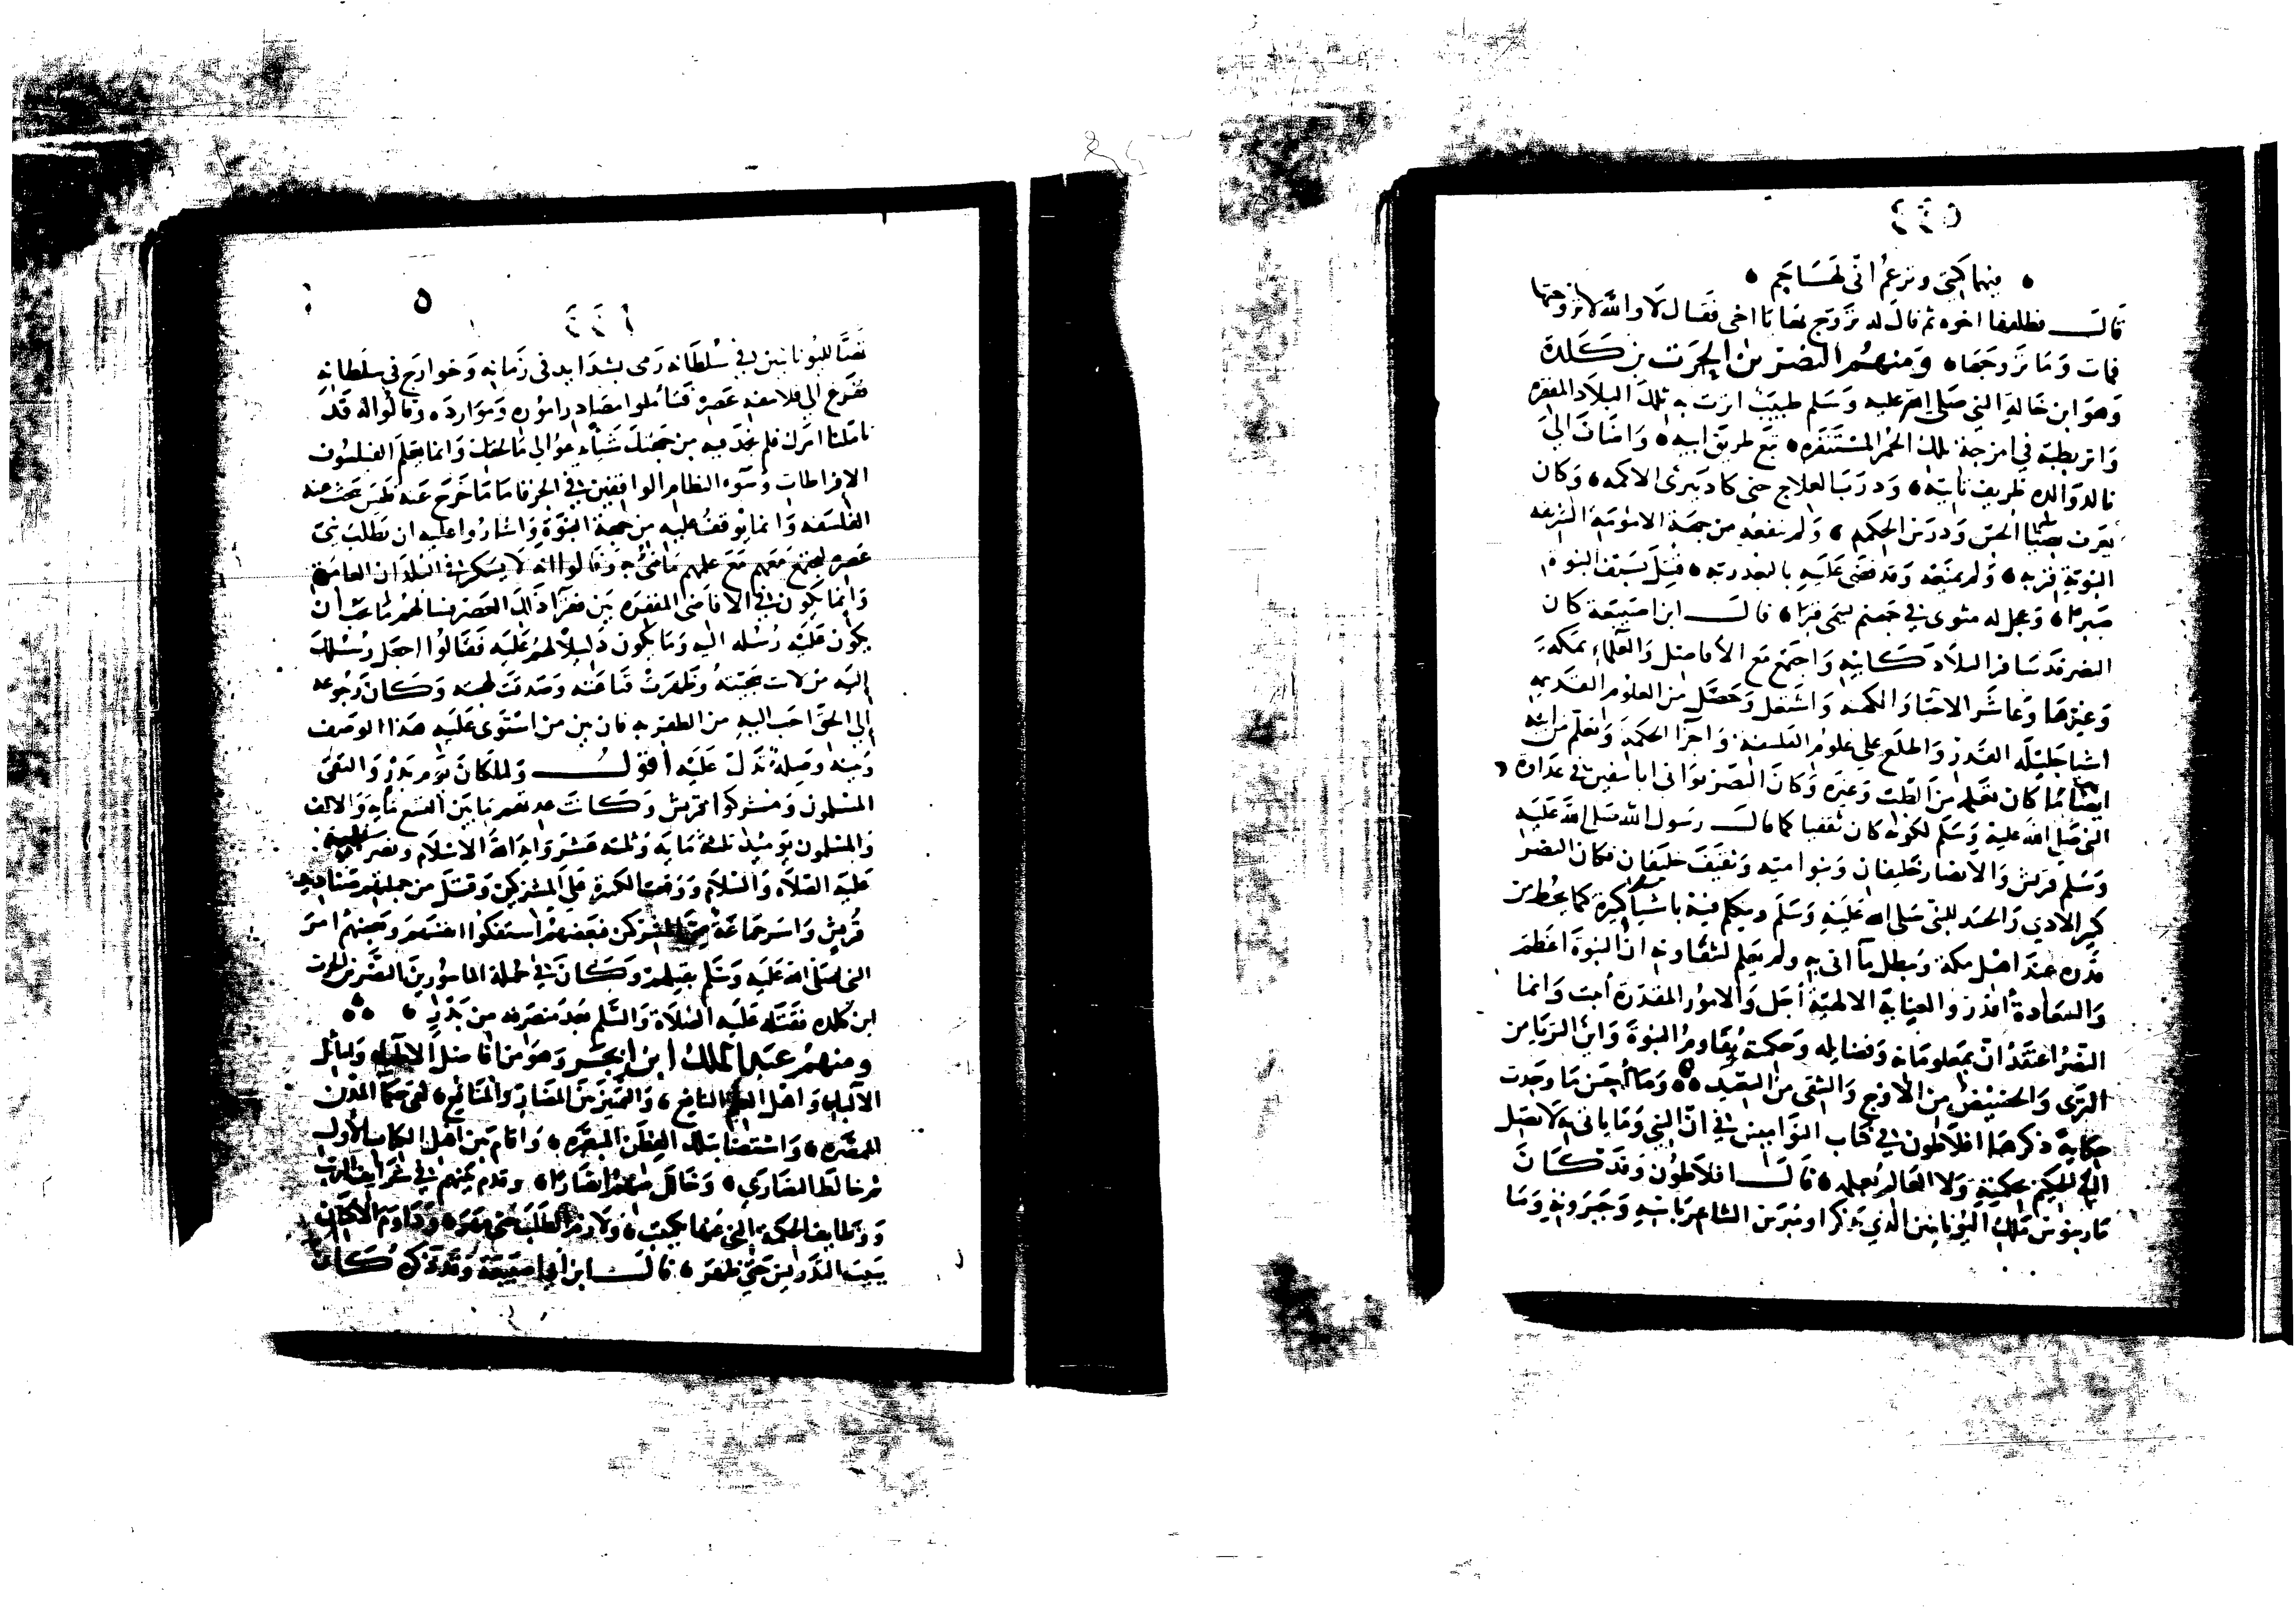 منها كيتي وتزعم اني لها حم
قالت فطلقها اخوه ثم قال له تزوج بها يا اخي فقال لا والله لا تزوجتها
فمات وما تزوجها ومنهم النضر بن الحرث بن كلدة
وهو ابن خالة النبي صلى الله عليه وسلم طبيب اثرت به تلك البلاد المقفره
في امزجة تلك الحمر المستنفره تبع طريق ابيه واضاف الى
تالد والده طريف ودرب العلاج حتى كاد يبرئ الاكمه وكان
يعرف بطب الحس ودرس الحكمه ولم ينفعه من جهة الامومة الشريفه
النبوية قربه ولم يمنعه وقد قضى عليه بالبعد ربه فقتل بسيف النبوة
صبرا وعجل له مثوى في جهنم يسمى قبرا قال ابن اصيبعة كان
النضر قد سافر البلاد كابيه واجتمع مع الافاضل والعلماء بمكة
وغيرها وعاشر الاحبار والكهنه واشتغل وحصل من العلوم القديمه
اشيا جليلة القدر واطلع على علوم الفلسفة واجزا الحكمة وتعلم من ابيه
ايضا ما كان يعلم من الطب وغيره وكان النضر يواتي ابا سفين في عداوة
النبي صلى الله عليه وسلم لكونه كان ثقفيا كما قال رسول الله صلى الله عليه
وسلم قريش والانصار حليفان وبنوا اميه وثقيف حليفان فكان النضر
كثير الاذي والحسد للنبي صلى الله عليه وسلم ويتكلم فيه باشيا كثيرة كما يحط من
قدره عند اهل مكة ويبطل ما اتى به ولم يعلم لشقاوته ان النبوة اعظم
والسعادة اقدر والعناية الالهية اجل والامور المقدرة اثبت وانما
النضر اعتقد ان بمعلوماته وفضايله وحكمته يقاوم النبوة واين الثريا من
الثرى والحضيض من الاوج والشقي من السعيد وما احسن ما وجدت
حكاية ذكرها افلاطون في كتاب النواميس في ان النبي وما ياتي به لا يصل
اليه الحكيم بحكمته ولا العالم بعلمه قال افلاطون وقد كان
مارينوس ملك اليونانيين الذي يذكر اوميرس الشاعر باسه وجبروته وما
تهيا لليونانيين في سلطانه رمى بشدايد في زمانه وخوارج في سلطانه
ففزع الى فلاسفه عصره فتاملوا مصادر اموره وموارده وقالوا له قد
تاملنا امرك فلم نجد فيه من جهتك شيا يدعوا الى ما لحقك وانما يعلم الفيلسوف
الافراطات وسوء النظام الواقعين في الجزء فاما ما خرج عنه فليس تبحث عنه
الفلسفة وانما يوقف عليه من جهة النبوة واشاروا عليه ان يطلب نبي
عصره ليجتمع معهم مع علمهم ما ينبئ به وقالوا انه لا يسكن في البلدان العامرة
وانما يكون في الاقاصي المقفره بين فقرآ ذلك العصر فسالهم ما يجب ان
يكون عليه رسله اليه وما يكون دليلا لهم عليه فقالوا اجعل رسلك
اليه من لانت سجيته وظهرت قناعته وصدقت لهجته وكان رجوعه
الي الحق احب اليه من الظفر به فان بين من استوى عليه هذا الوصف
وبينه وصلة تدل عليه اقول ولما كان يوم بدر والتقى
المسلمون ومشركوا قريش وكانت عدتهم ما بين التسع مايه والالف
والمسلمون يوميذ ثلثة مايه وثلثة عشر وايد الله الاسلام ونصر نبيه
عليه الصلاه والسلام ووقعت الكسرة على المشركين وقتل من جملتهم صناديد
قريش واسر جماعة من المشركين فبعضهم استفكوا انفسهم وبعضهم امر
النبي صلى الله عليه وسلم بقتلهم وكان في جملة الماسورين النضر بن الحرث
ابن كلده فقتله عليه الصلاة والسلم بعد منصرفه من بدر
ومنهم عبد الملك ابن ابجر وهو من افاضل الاطباء واماثل
الالباء واهل العلم النافع والتمييز بين المضار والمنافع لقي حكمآ المدن
الممصره واستضا بتلك الفطن المبصره واقام بين اهل الكتاب الاول
ثم خالط النصارى وقدم بينهم في
ووظايف الحكمة التي ولازم الطلب حتى مهر وداوم الاكباب
ببيت التدريس حتى ظهر قال ابن ابي اصيبعة وقد ذكره كان